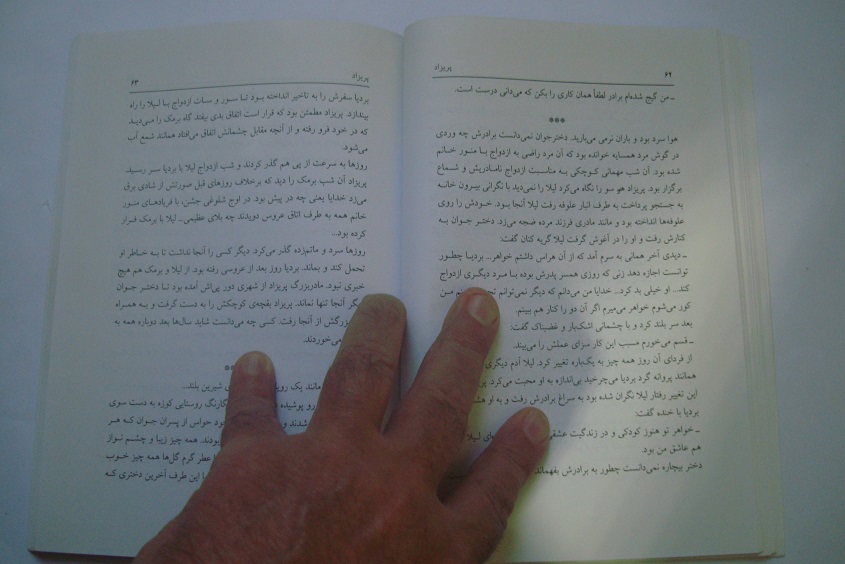 ۶۲
پریزاد
ـ من گیج شده‌ام برادر لطفاً همان کاری را بکن که می‌دانی درست است.
***
هوا سرد بود و باران نرمی می‌بارید. دخترجوان نمی‌دانست برادرش چه وردی
در گوش مرد همسایه خوانده بود که آن مرد راضی به ازدواج با منور خانم
شده بود. آن شب مهمانی کوچکی به مناسبت ازدواج نامادریش و شماع
برگزار بود. پریزاد هر سو را نگاه می‌کرد لیلا را نمی‌دید با نگرانی بیرون خانه
به جستجو پرداخت به طرف انبار علوفه رفت لیلا آنجا بود. خودش را روی
علوفه‌ها انداخته بود و مانند مادری فرزند مرده ضجه می‌زد. دختر جوان به
کنارش رفت و او را در آغوش گرفت لیلا گریه کنان گفت:
ـ دیدی آخر همانی به سرم آمد که از آن هراس داشتم خواهر... بردیا چطور
توانست اجازه دهد زنی که روزی همسر پدرش بوده با مرد دیگری ازدواج
کند... او خیلی بد کرد... خدایا من می‌دانم که دیگر نمی‌توانم من
کور می‌شوم خواهر می‌میرم اگر آن دو را کنار هم ببینم.
بعد سر بلند کرد و با چشمانی اشک‌بار و غضبناک گفت:
ـ قسم می‌خورم مسبب این کار سزای عملش را می‌بیند.
از فردای آن روز همه چیز به یک‌باره تغییر کرد. لیلا آدم دیگری
همانند پروانه گرد بردیا می‌چرخید بی‌اندازه به او محبت می‌کرد
این تغییر رفتار لیلا نگران شده بود به سراغ برادرش رفت و به او
بردیا با خنده گفت:
ـ خواهر تو هنوز کودکی و در زندگیت لیلا
هم عاشق من بود.
دختر بیچاره نمی‌دانست چطور به برادرش بفهماند
پریزاد
۶۳
بردیا سفرش را به تاخیر انداخته بود تا سور و سات ازدواج با لیلا را راه
بیندازد. پریزاد مطمئن بود که قرار است اتفاق بدی بیفتد گاه برمک را می‌دید
که در خود فرو رفته و از آنچه مقابل چشمانش اتفاق می‌افتاد همانند شمع آب
می‌شود.
روزها به سرعت از پی هم گذر کردند و شب ازدواج لیلا با بردیا سر رسید.
پریزاد آن شب برمک را دید که برخلاف روزهای قبل صورتش از شادی برق
می‌زد خدایا یعنی چه در پیش بود. در اوج شلوغی جشن، با فریادهای منور
خانم همه به طرف اتاق عروس دویدند چه بلای عظیمی... لیلا با برمک فرار
کرده بود..
روزها سرد و ماتم‌زده گذر می‌کرد. دیگر کسی را آنجا نداشت تا به خاطر او
تحمل کند و بماند. بردیا روز بعد از عروسی رفته بود. از لیلا و برمک هم هیچ
خبری نبود. مادربزرگ پریزاد از شهری دور پی‌اش آمده بود تا دختر جوان
آنجا تنها نماند. پریزاد بقچه‌ی کوچکش را به دست گرفت و به همراه
از آنجا رفت. کسی چه می‌دانست شاید سال‌ها بعد دوباره همه به
می‌خوردند.
مانند یک شیرین بلند...
رو پوشیده روستایی کوزه به دست سوی
و حواس از پسران جوان که هر
بودند. همه چیز زیبا و چشم نواز
عطر گرم گل‌ها همه چیز خوب
این طرف آخرین دختری که